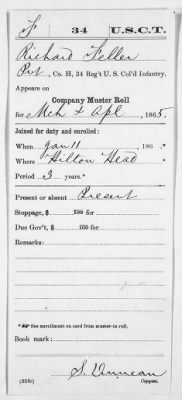 F 34 U.S.C.T.
Richard Feller
Pvt, Co. H, 34 Reg't U. S. Col'd Infantry.
Appears on
Company Muster Roll
for Mch & Apl, 1865.
Joined for duty and enrolled:
When Jan 11, 186 .*
Where Hilton Head
Period 3 years.*
Present or absent Present
Stoppage, $ 100 for
Due Gov't, $ 100 for
Remarks:
*See enrollment on card from muster-in roll.
Book mark:
S. Duncan
(358c) Copyist.